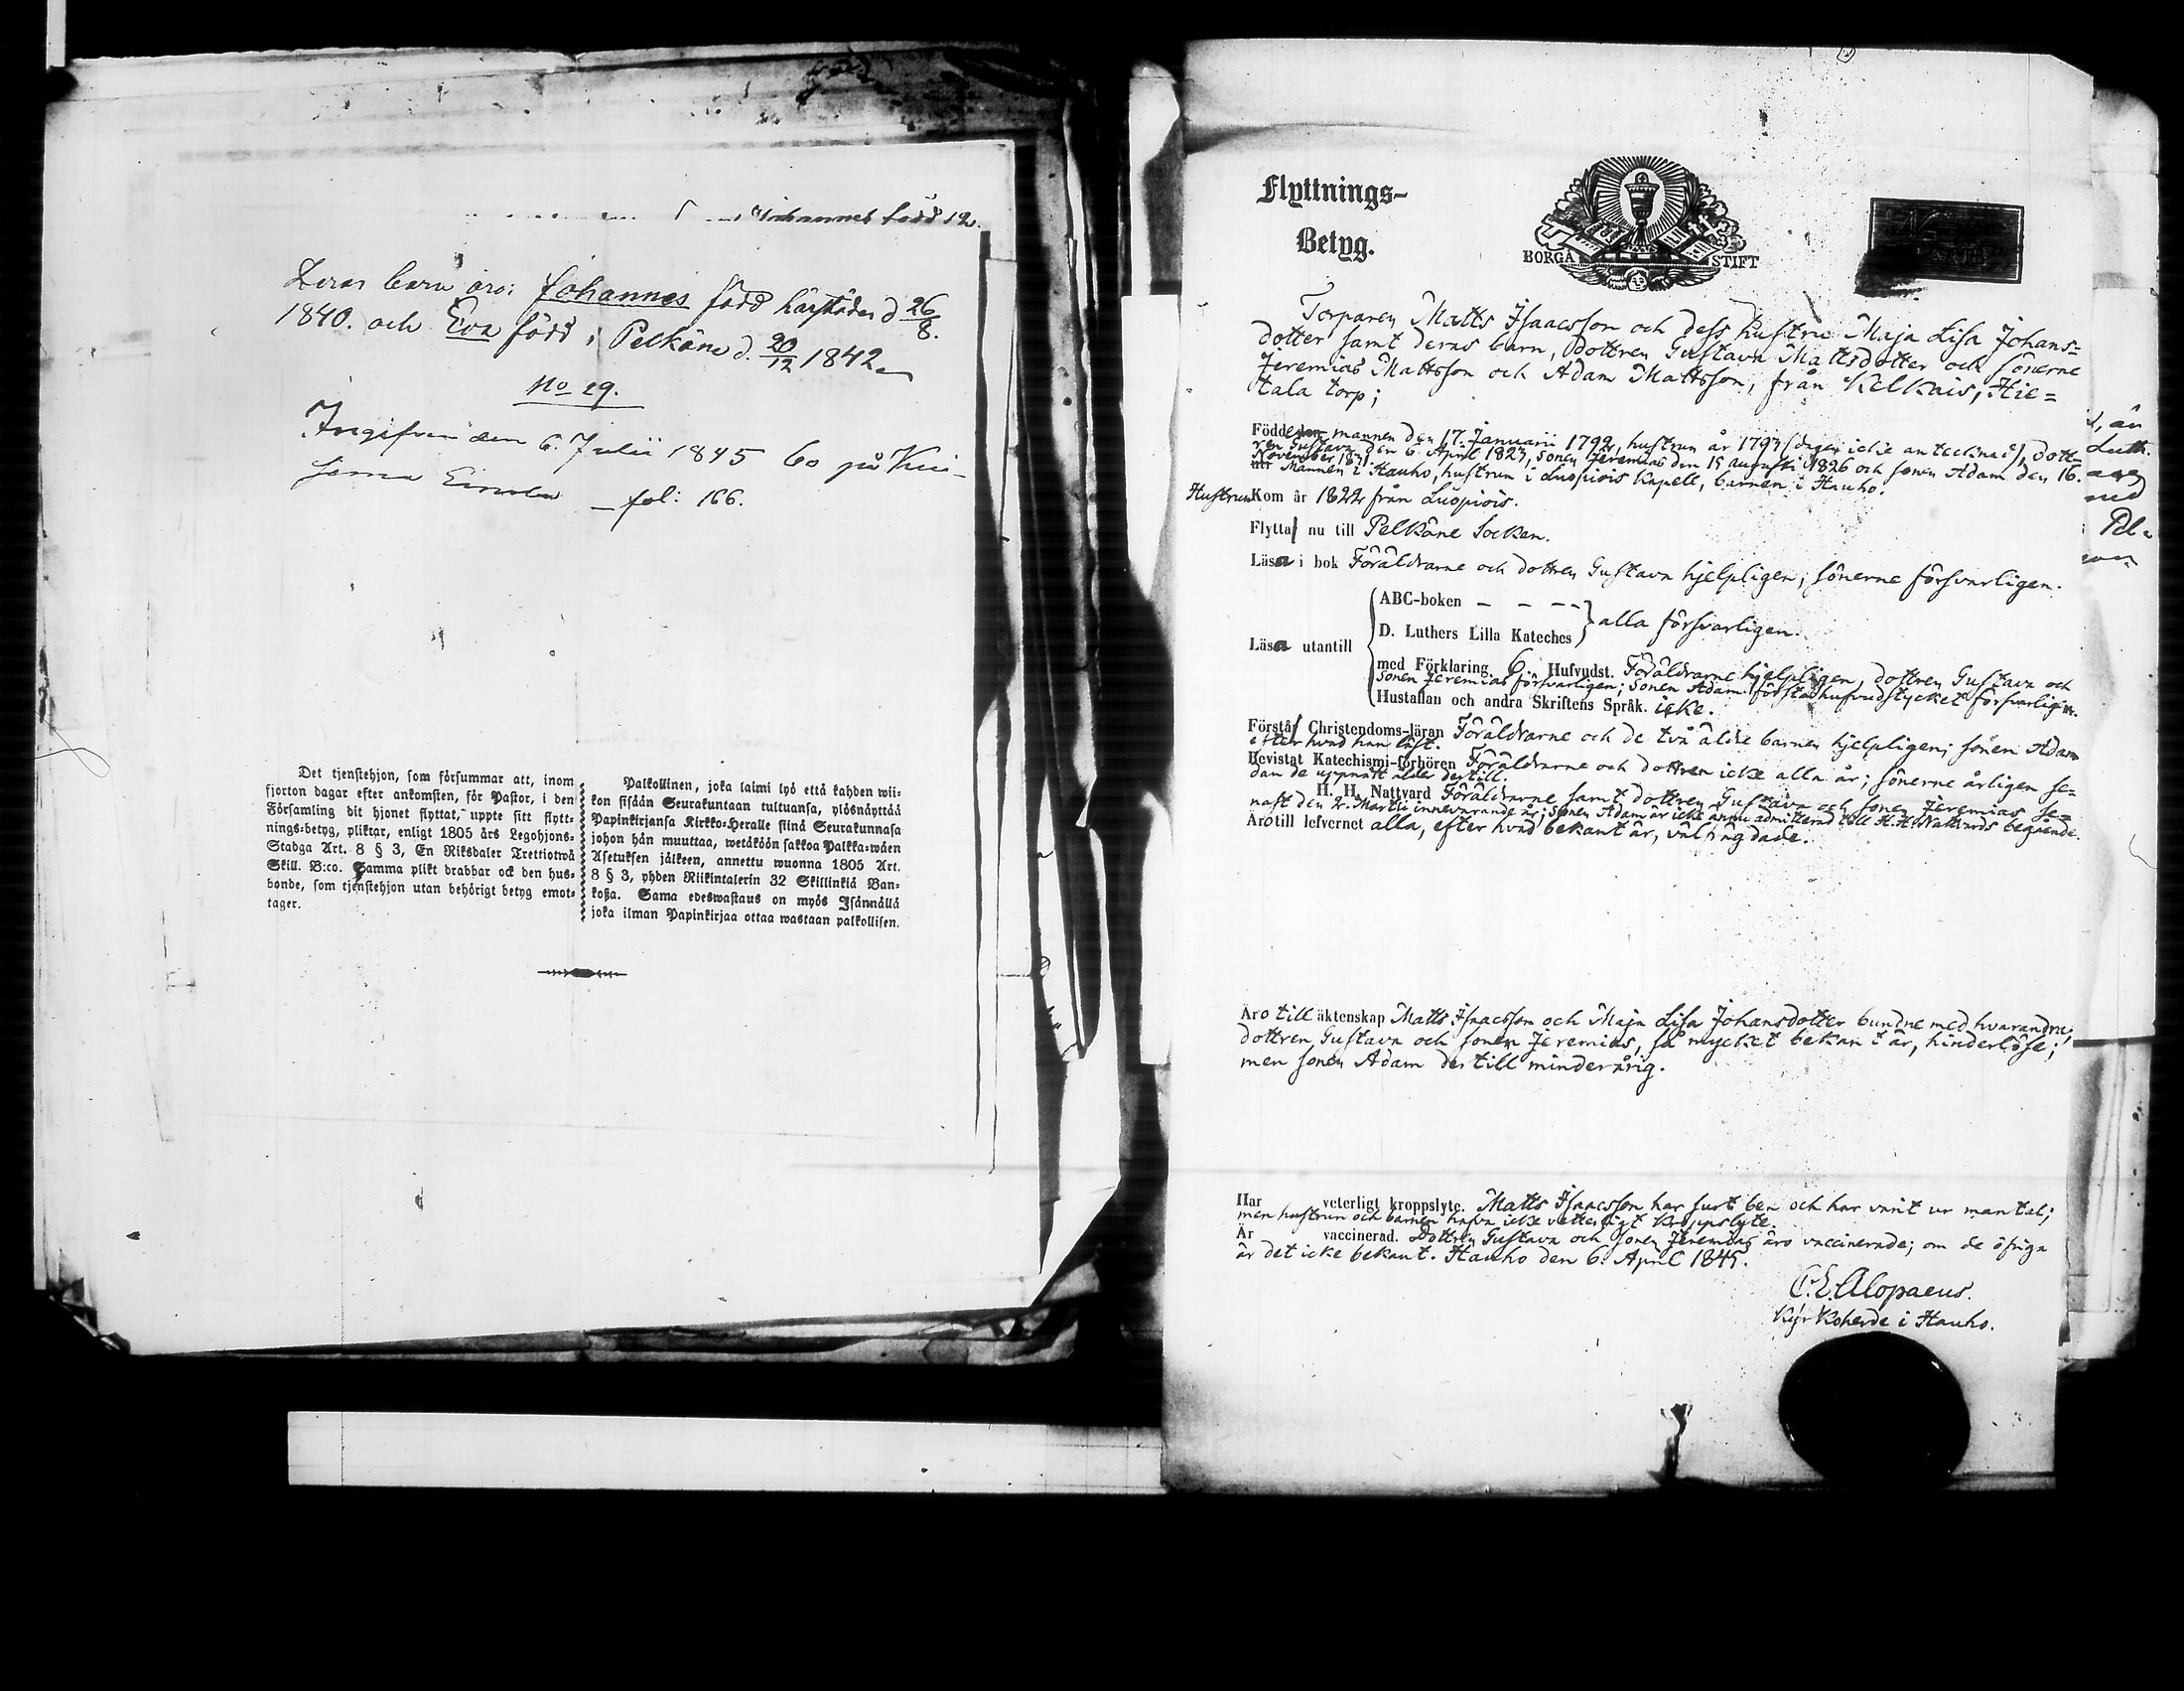 Johannes född 12.
Deras barn äro: Johannes född härstädes d 26/8.
1840. och Eva född i Pelkäne d. 20/12 1842
No 29.
den 6. Julii 1845 bo på
fol: 166.
Det tjenstehjon, som försummar att, inom
fjorton dagar efter ankomsten, för Pastor, i den
Församling dit hjonet flyttat, uppte sitt flytt-
nings-betyg, pliktar, enligt 1805 års Legohjons-
Stadga Art. 8 § 3, En Riksdaler Trettiotwå
Skill. B:co. Samma plikt drabbar ock den hus-
bonde, som tjenstehjon utan behörigt betyg emot-
tager.
Palkollinen, joka laimi lyö että kahden wii-
kon sisään Seurakuntaan tultuansa, ylösnäyttää
Papinkirjansa Kirkko-Heralle siinä Seurakunnasa
johon hän muuttaa, wetäköön sakkoa Palkka-wäen
Asetuksen jälkeen, annettu wuonna 1805 Art.
8 § 3, yhden Riikintalerin 32 Skillinkiä Ban-
koßa. Sama edeswastaus on myös Isännällä
joka ilman Papinkirjaa ottaa wastaan palkollisen.
Flyttnings-
Betyg.
BORGÅ STIFT
Torparen Matts Isaacsson och dess hustru Maja Lisa Johans=
dotter samt deras barn, dottren Gustava Mattsdotter och sönerne
Jeremias Mattsson och Adam Mattsson, från Kelkais, Hie=
tala torp;
Födde den mannen den 17. Januarii 1792, hustrun år 1797 (dagen icke antecknad), dott=
ren Gustava den 6. April 1823, sonen Jeremias den 15 augusti 1826 och sonen Adam den 16.
November Mannen i Hauho, hustrun i Luopiois Kapell, barnen i Hauho.
Hustrun Kom år 1822 från Luopiois.
Flytta nu till Pelkäne Socken.
Läsa i bok Föräldrarne och dottren Gustava hjelpligen; sönerne försvarligen.
ABC-boken - - --
D. Luthers Lilla Kateches } alla försvarligen.
Läsa utantill
med Förklaring 6. Hufvudst. Föräldrarne hjelpligen, dottren Gustava och
sonen Jeremias försvarligen; sonen Adam första hufvudstycket försvarligen.
Hustaflan och andra Skriftens Språk. icke.
Förstå Christendoms-läran Föräldrarne och de två äldre barnen hjelpligen; sonen Adam
efter hvad han läst.
Bevistat Katechismi-förhören Föräldrarne och dottren icke alla år; sönerne årligen se=
dan de uppnått ålder dertill.
H. H. Nattvard Föräldrarne samt dottren Gustava och sonen Jeremias se=
nast den 2. Martii innevarande år; sonen Adam är icke ännu admitterad till H. H. Nattvards begående.
Äro till lefvernet alla, efter hvad bekant är, välfrägdade.
Äro till äktenskap Matts Isaacsson och Maja Lisa Johansdotter bundne med hvarandra;
dottren Gustava och sonen Jeremias, så mycket bekant är, hinderlöse;
men sonen Adam dertill minderårig.
Har veterligt kroppslyte. Matts Isaacsson har surt ben och har varit ur mantal;
men hustrun och barnen hafva icke vetterligt kroppslyte.
Är vaccinerad. Dottren Gustava och sonen Jeremias äro vaccinerade; om de öfriga
är det icke bekant. Hauho den 6. April 1845.
C. E. Alopaeus.
Kyrkoherde i Hauho.
Luth.
Pel=